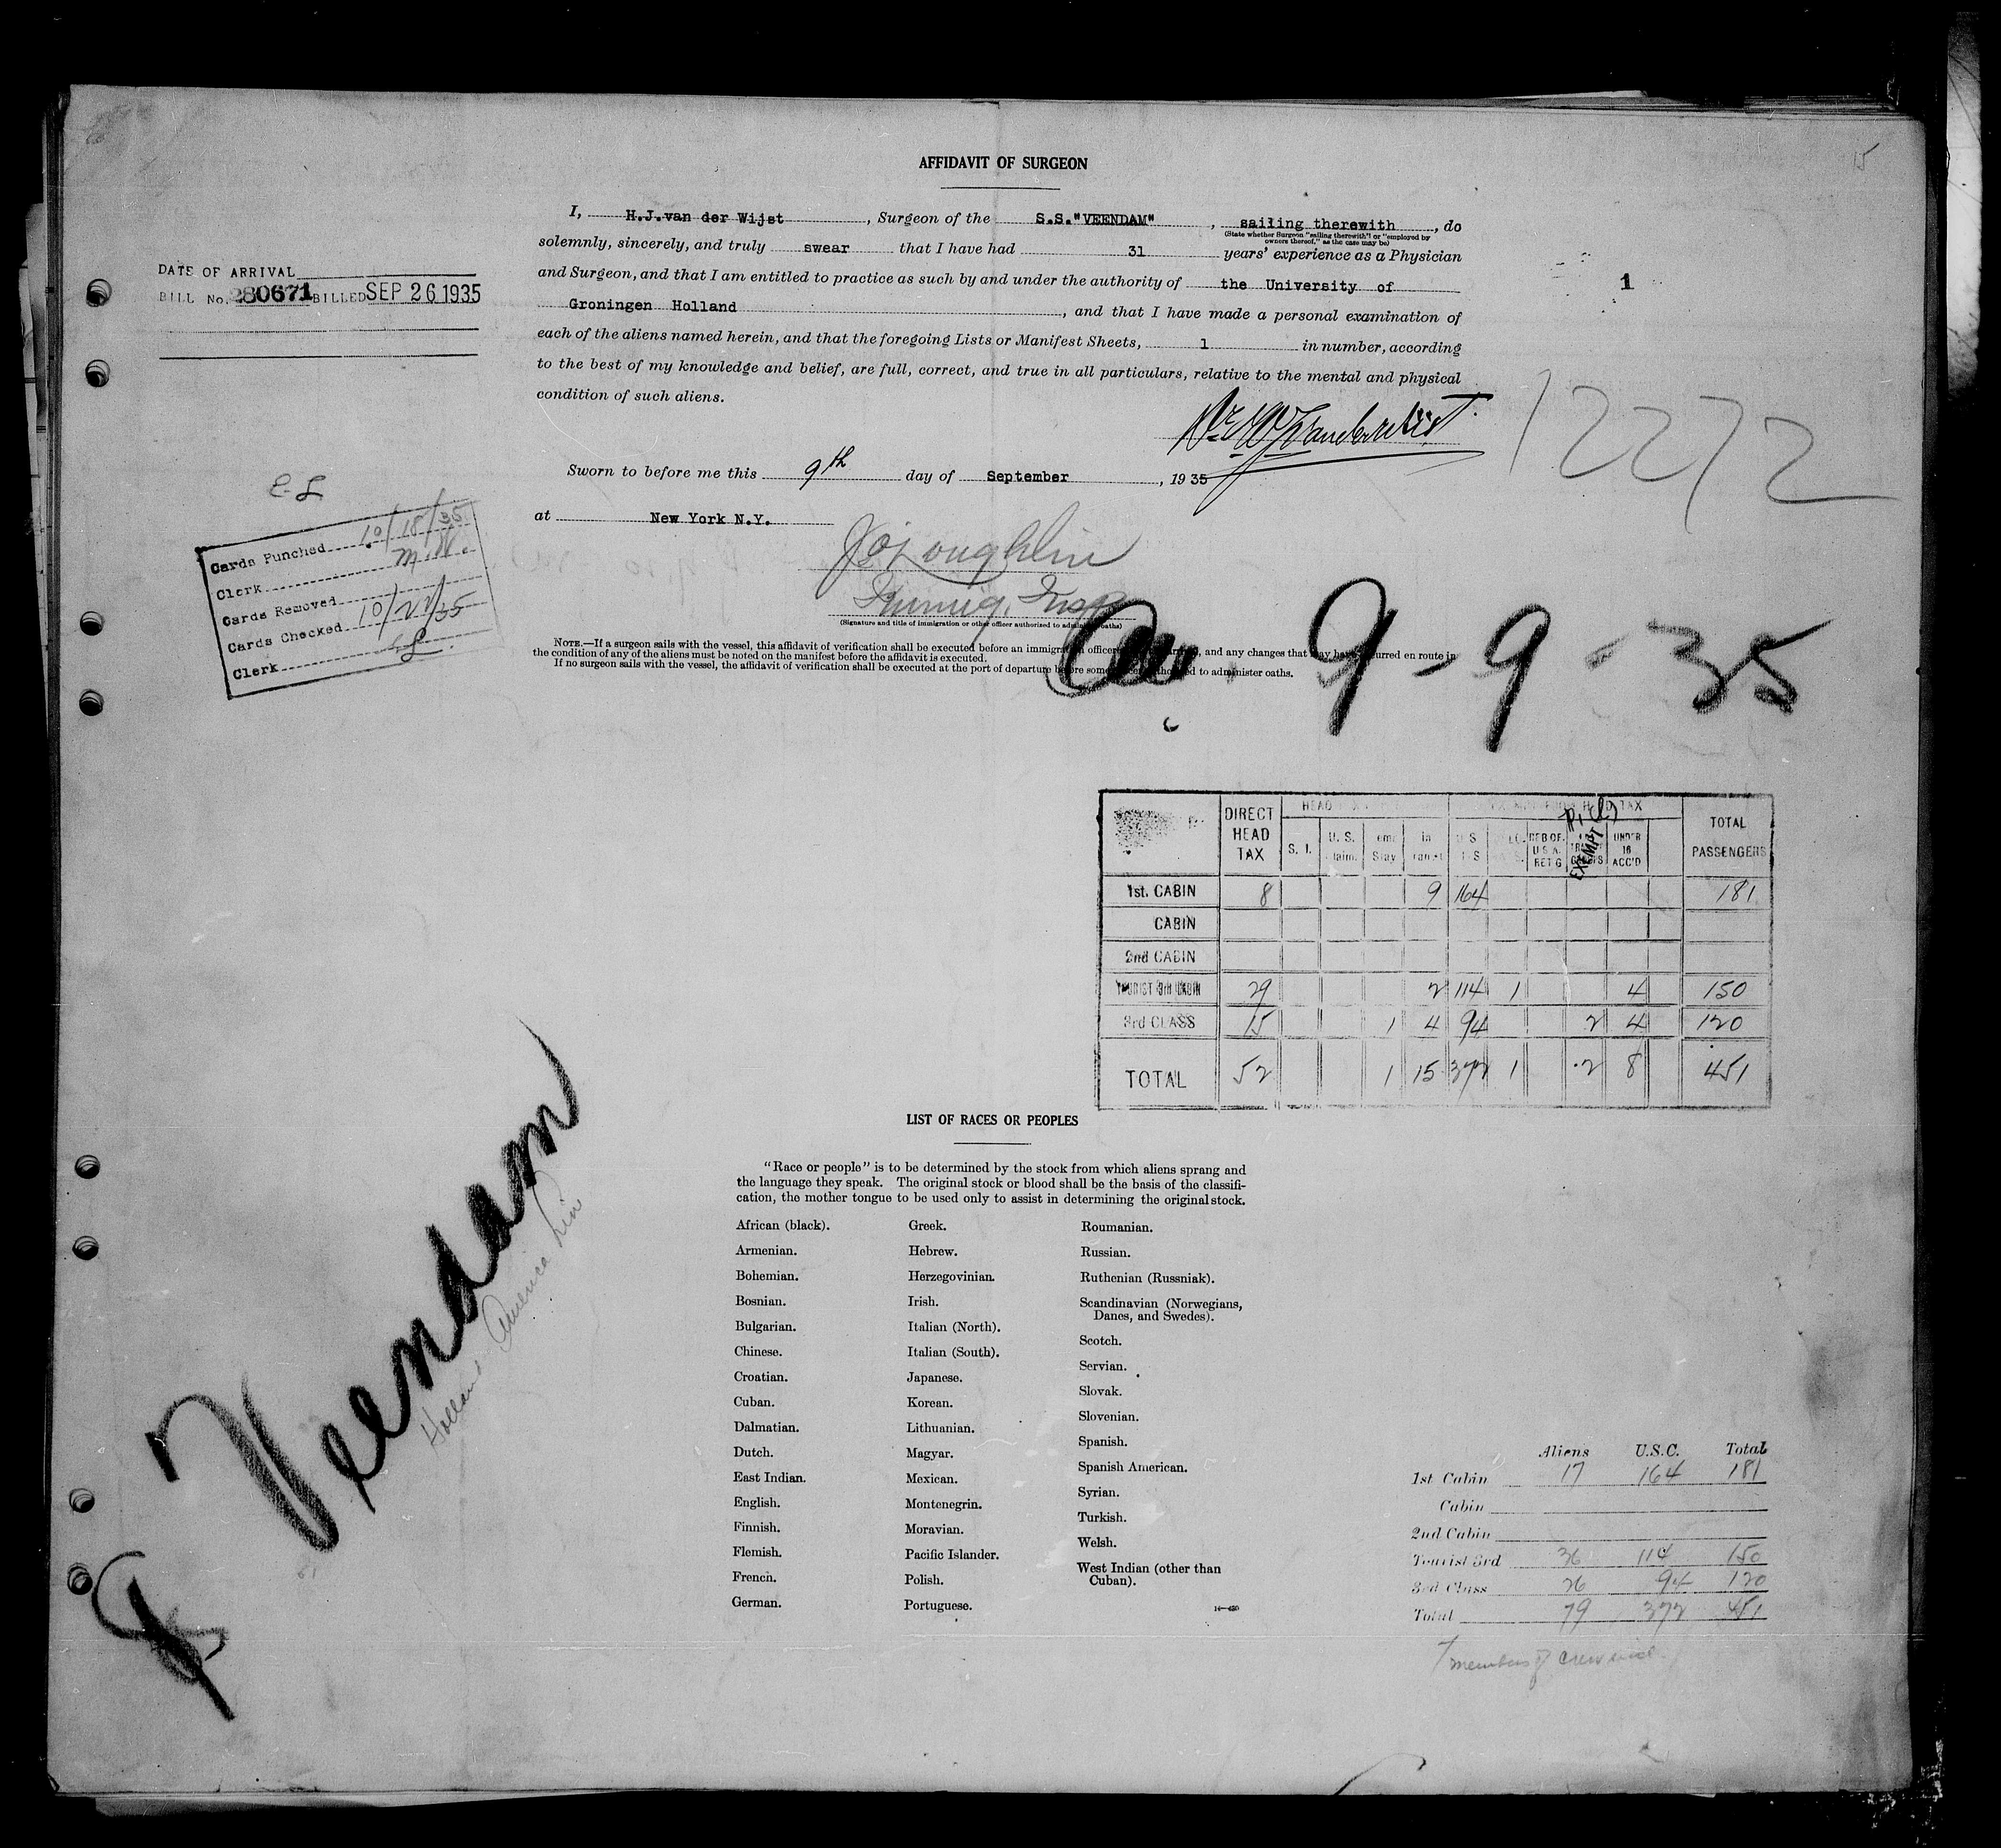 15
AFFIDAVIT OF SURGEON
I, H.J.van der Wijst, Surgeon of the S.S."VEENDAM", sailing therewith, do
(State whether Surgeon "sailing therewith" or "employed by
owners thereof," as the case may be)
solemnly, sincerely, and truly swear that I have had 31 years' experience as a Physician
and Surgeon, and that I am entitled to practice as such by and under the authority of the University of
Groningen Holland, and that I have made a personal examination of
each of the aliens named herein, and that the foregoing Lists or Manifest Sheets, 1 in number, according
to the best of my knowledge and belief, are full, correct, and true in all particulars, relative to the mental and physical
condition of such aliens.
DATE OF ARRIVAL
BILL No. 280671 BILLED SEP 26 1935
1
12272
Sworn to before me this 9th day of September, 1935
at New York N.Y.
Immig. Insp
(Signature and title of immigration or other officer authorized to administer oaths)
Cards Punched 10/18/35
Clerk
Cards Removed
Cards Checked 10/22/35
Clerk
NOTE.—If a surgeon sails with the vessel, this affidavit of verification shall be executed before an immigration officer and any changes that may have occurred en route in
the condition of any of the aliens must be noted on the manifest before the affidavit is executed.
If no surgeon sails with the vessel, the affidavit of verification shall be executed at the port of departure before some authorized to administer oaths.
9-9-35
DIRECT HEAD TAX S. I. U. S. Claim. Stay in transit U S EXEMPT UNDER 16 ACC'D TOTAL PASSENGERS
1st. CABIN 8 9 164 181
CABIN
2nd CABIN
TOURIST 3rd CABIN 29 2 114 1 4 150
3rd CLASS 15 1 4 94 2 4 120
TOTAL 52 1 15 372 1 2 8 451
Veendam
Holland America Line
LIST OF RACES OR PEOPLES
"Race or people" is to be determined by the stock from which aliens sprang and
the language they speak. The original stock or blood shall be the basis of the classifi-
cation, the mother tongue to be used only to assist in determining the original stock.
African (black).
Armenian.
Bohemian.
Bosnian.
Bulgarian.
Chinese.
Croatian.
Cuban.
Dalmatian.
Dutch.
East Indian.
English.
Finnish.
Flemish.
French.
German.
Greek.
Hebrew.
Herzegovinian.
Irish.
Italian (North).
Italian (South).
Japanese.
Korean.
Lithuanian.
Magyar.
Mexican.
Montenegrin.
Moravian.
Pacific Islander.
Polish.
Portuguese.
Roumanian.
Russian.
Ruthenian (Russniak).
Scandinavian (Norwegians,
Danes, and Swedes).
Scotch.
Servian.
Slovak.
Slovenian.
Spanish.
Spanish American.
Syrian.
Turkish.
Welsh.
West Indian (other than
Cuban).
Aliens U.S.C. Total
1st Cabin 17 164 181
Cabin
2nd Cabin
Tourist 3rd 36 114 150
3rd Class 26 94 120
Total 79 372 451
members of crew